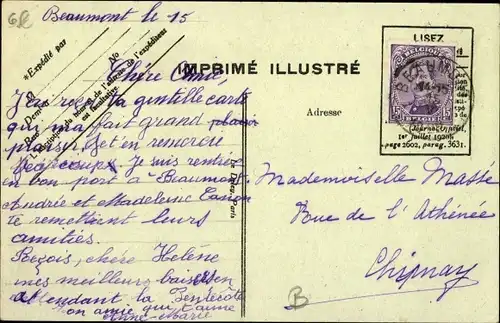 6L
Beaumont le 15
"Expédié par
M
Demeur
No
L'indication du nom et de l'adresse de l'expéditeur
est facultative
IMPRIMÉ ILLUSTRÉ
LISEZ
BELGIQUE
BEAUMO
14-15
Journal Officiel,
1er juillet 1920,
page 2602, parag. 363.
Adresse
Chère Amie,
J'ai reçu ta gentille carte
qui m'a fait grand plaisir
plaisir et t'en remercie
beaucoup. Je suis rentrée
en bon port à Beaumont
Andrée et Madeleine
te remettent leurs
amitiés.
Reçois, chère Hélène
mes meilleurs baisers en
attendant la Pentecôte
ton amie qui t'aime
Anne-Marie
Le Deley, Paris
Mademoiselle Masse
Rue de l'Athénée
Chimay
B